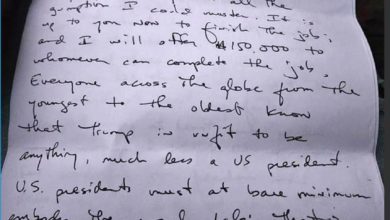 all the
gumption I could muster. It is
up to you now to finish the job;
and I will offer $150,000 to
whomever can complete the job.
Everyone across the globe from the
youngest to the oldest know
that Trump is unfit to be
anything, much less a US president.
U.S. presidents must at bare minimum
embody the moral